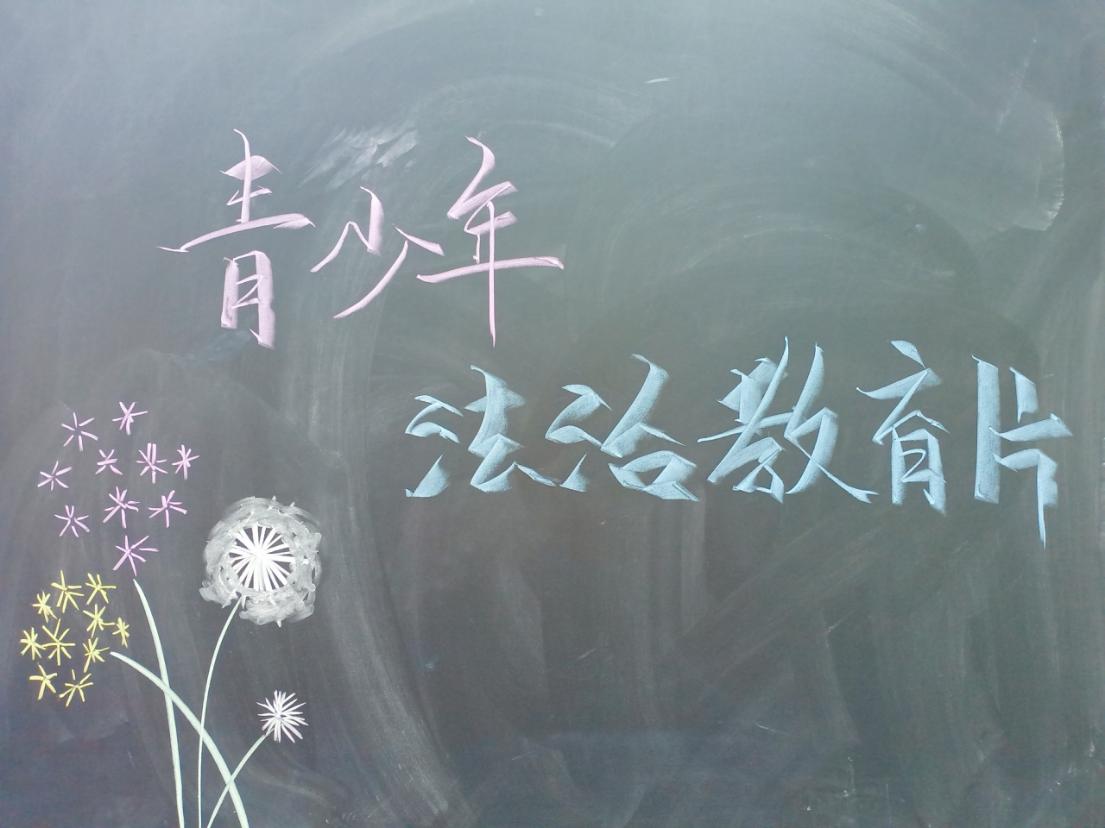 青少年
法治教育片